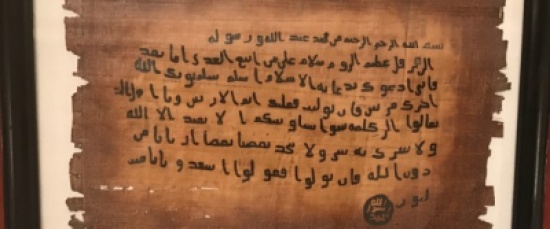 بسم الله الرحمن الرحيم من محمد عبد الله ورسوله
الى هرقل عظيم الروم سلام على من اتبع الهدى اما بعد
فانى ادعوك بدعاية الاسلام اسلم تسلم يوتك الله
اجرك مرتين فان توليت فعليك اثم الاريسين ويا اهل
تعالوا الى كلمة سوا بيننا وبينكم ا لا نعبد الا الله
ولا نشرك به شيا ولا يتخذ بعضنا بعضا اربابا من
دون الله فان تولوا فقولوا اشهدوا بانا مس
لمون
الله
رسول